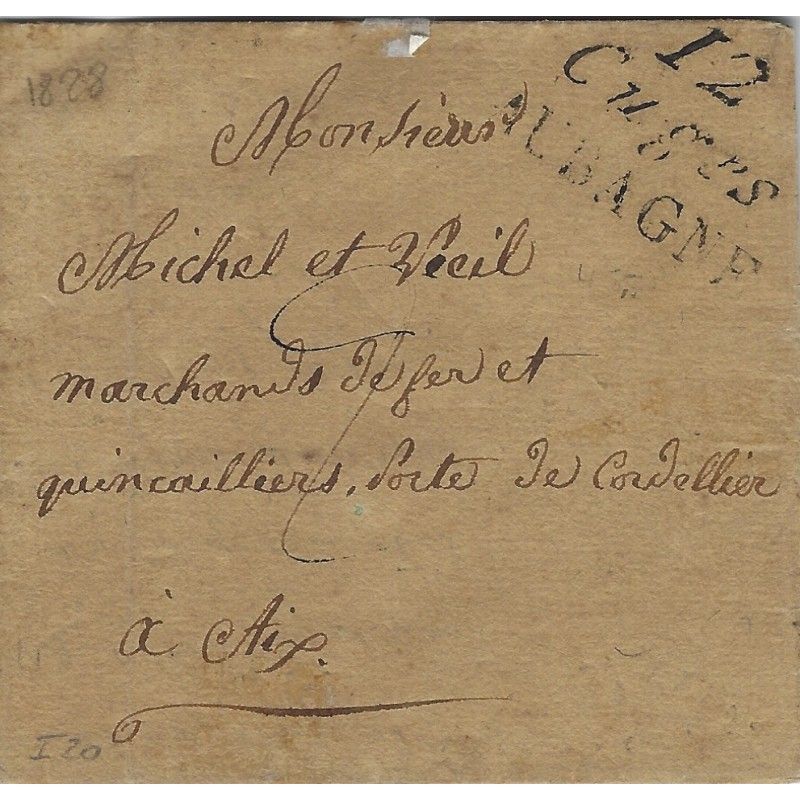 1828
12
Cuges
AUBAGNE
Monsieur
Michel et Vieil
marchands de fer et
quincailliers, Porte de Cordellier
à Aix.
I 20